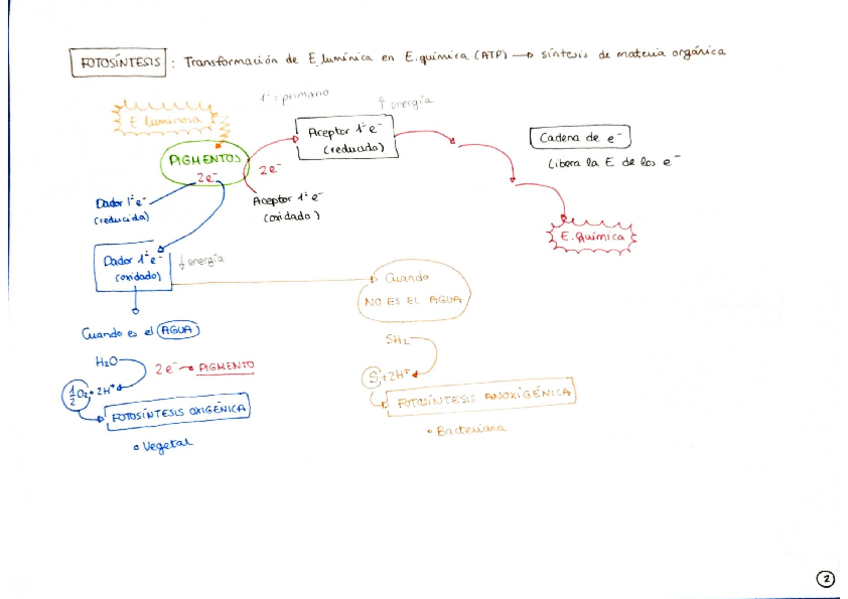 FOTOSÍNTESIS : Transformación de E. lumínica en E. química (ATP) → síntesis de materia orgánica
1º: primario
↑ energía
E luminosa
Aceptor 1º e⁻
(reducido)
Cadena de e⁻
Libera la E de los e⁻
PIGMENTOS
2e⁻
2e⁻
Dador 1º e⁻
(reducida)
Aceptor 1º e⁻
(oxidado)
E. Química
Dador 1º e⁻
(oxidado)
↓ energía
Cuando
NO ES EL AGUA
Cuando es el AGUA
H₂O
2e⁻ → PIGMENTO
½O₂ + 2H⁺
FOTOSÍNTESIS OXIGÉNICA
• Vegetal
SH₂
S + 2H⁺
FOTOSÍNTESIS ANOXIGÉNICA
• Bacteriana
2